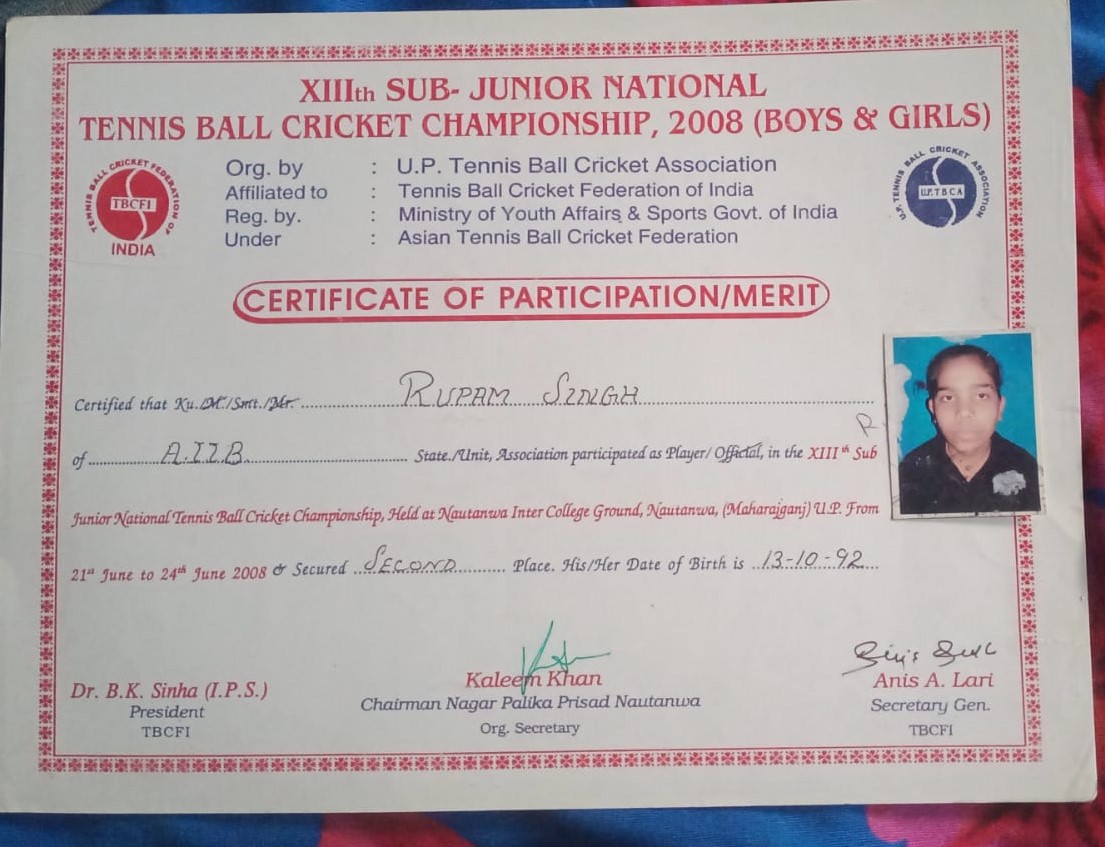 XIIIth SUB- JUNIOR NATIONAL
TENNIS BALL CRICKET CHAMPIONSHIP, 2008 (BOYS & GIRLS)
TENNIS BALL CRICKET FEDERATION OF
TBCFI
INDIA
Org. by : U.P. Tennis Ball Cricket Association
Affiliated to : Tennis Ball Cricket Federation of India
Reg. by. : Ministry of Youth Affairs & Sports Govt. of India
Under : Asian Tennis Ball Cricket Federation
U.P. TENNIS BALL CRICKET ASSOCIATION
U.P.T.B.C.A
CERTIFICATE OF PARTICIPATION/MERIT
Certified that Ku./M./Smt./Mr. RUPAM SINGH
of A.I.I.B. State./Unit, Association participated as Player/ Official, in the XIIIth Sub
Junior National Tennis Ball Cricket Championship, Held at Nautanwa Inter College Ground, Nautanwa, (Maharajganj) U.P. From
21st June to 24th June 2008 & Secured SECOND Place. His/Her Date of Birth is 13-10-92
Dr. B.K. Sinha (I.P.S.)
President
TBCFI
Kaleem Khan
Chairman Nagar Palika Prisad Nautanwa
Org. Secretary
Anis A. Lari
Secretary Gen.
TBCFI